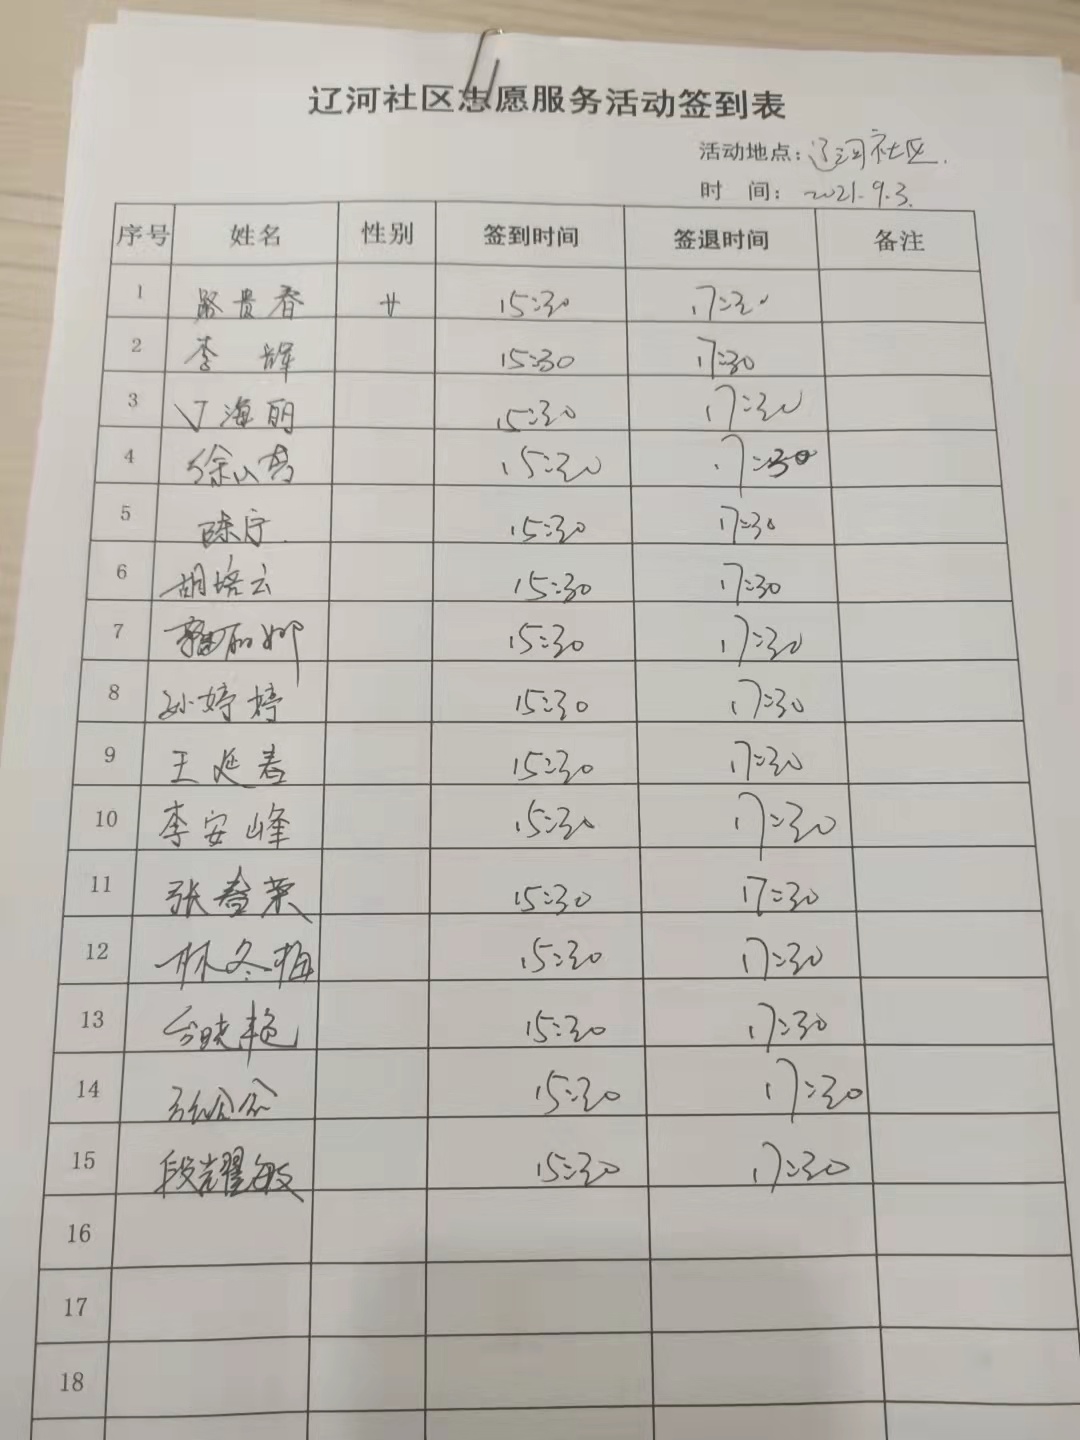 辽河社区志愿服务活动签到表
活动地点：辽河社区.
时 间：2021.9.3.
序号 姓名 性别 签到时间 签退时间 备注
1 路贵春 女 15:30 17:30
2 李 辉 15:30 17:30
3 丁海丽 15:30 17:30
4 徐 15:30 17:30
5 陈宁. 15:30 17:30
6 胡培云 15:30 17:30
7 丽娜 15:30 17:30
8 孙婷婷 15:30 17:30
9 王延春 15:30 17:30
10 李安峰 15:30 17:30
11 张春荣 15:30 17:30
12 林冬梅 15:30 17:30
13 台晓艳 15:30 17:30
14 15:30 17:30
15 段耀敏 15:30 17:30
16
17
18